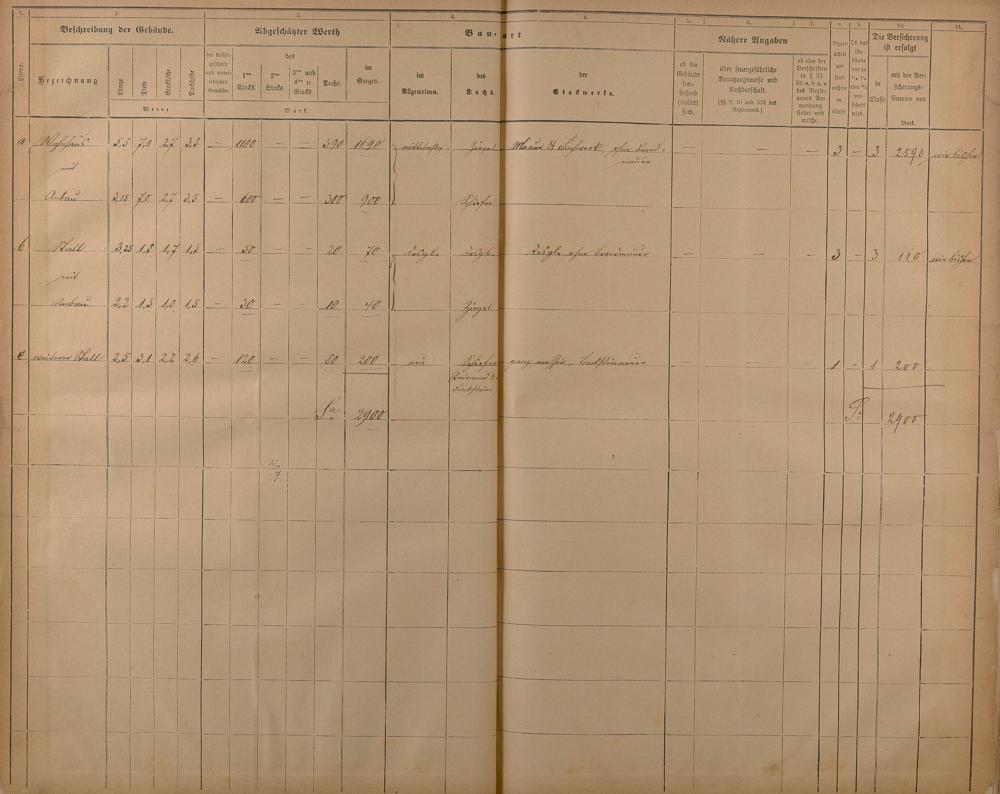 1. 2. 3. 4. 4. 5. 6. 7. 8. 9. 10. 11.
Beschreibung der Gebäude. Abgeschätzter Werth Bau-art Nähere Angaben Die Versicherung ist erfolgt
Litera. Bezeichnung Länge Tiefe Stockhöhe Dachhöhe
Meter
der Kellergeschosse und unterirdischen Gewölbe. des 1ten Stocks. 2ten Stocks 3ten und 4ten &c. Stocks Dachs. im Ganzen.
Mark.
im Allgemeinen. des Dachs. der Stockwerke.
ob die Gebäude freistehend (isolirt) sind.
über feuergefährliche Benutzungsweise und Nachbarschaft.
(§§ 9, 10 und 33d des Reglements.)
ob eine der Vorschriften in § 33 lit. a, b, c, e des Reglements Anwendung findet und welche.
in Classe mit der Versicherungs-Summe von Mark.
a Wohnhaus 7,0 2,7 3,5 — 1100 — — 590 1690 mittelmäßig Ziegel Mauer & Fachwerk, ohne Brandmauer — — — 3 — 3 2590 wie bisher
mit
Anbau 3,15 7,0 2,7 3,5 — 600 — — 300 900 Schiefer
b Stall 3,25 1,8 1,7 1,5 — 50 — — 20 70 desgl. desgl. desgl. ohne Brandmauer — — — 3 — 3 110 wie bisher
mit
Anbau 2,2 1,5 1,0 1,5 — 30 — — 10 40 Ziegel
c weiterer Stall 2,5 3,1 2,2 2,6 — 120 — — 80 200 neu Schiefer ganz massiv, Backsteinmauer — 1 - 1 200
Sa 2900 S. 2900